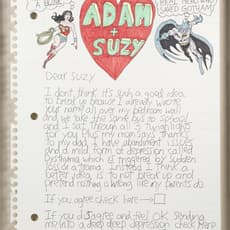 REAL HERO WHO
SAVED GOTHAM!
ADAM
+
SUZY
Dear Suzy
I don't think it's such a good idea
to break up because I already wrote
your name all over my bedroom wall
and we take the same bus to school
and I sat through all 3 Twilights
for you thus my mom says. Thanks
to my dad I have abandment issues
and a mild form of depression called
Dysthymia which is triggered by sudden
loss or a trama. Instead I think a
better idea is to not break up and
pretend nothing is wrong like my parents do.
If you agree check here →
If you disagree and feel OK sending
me into a deep deep depression check here